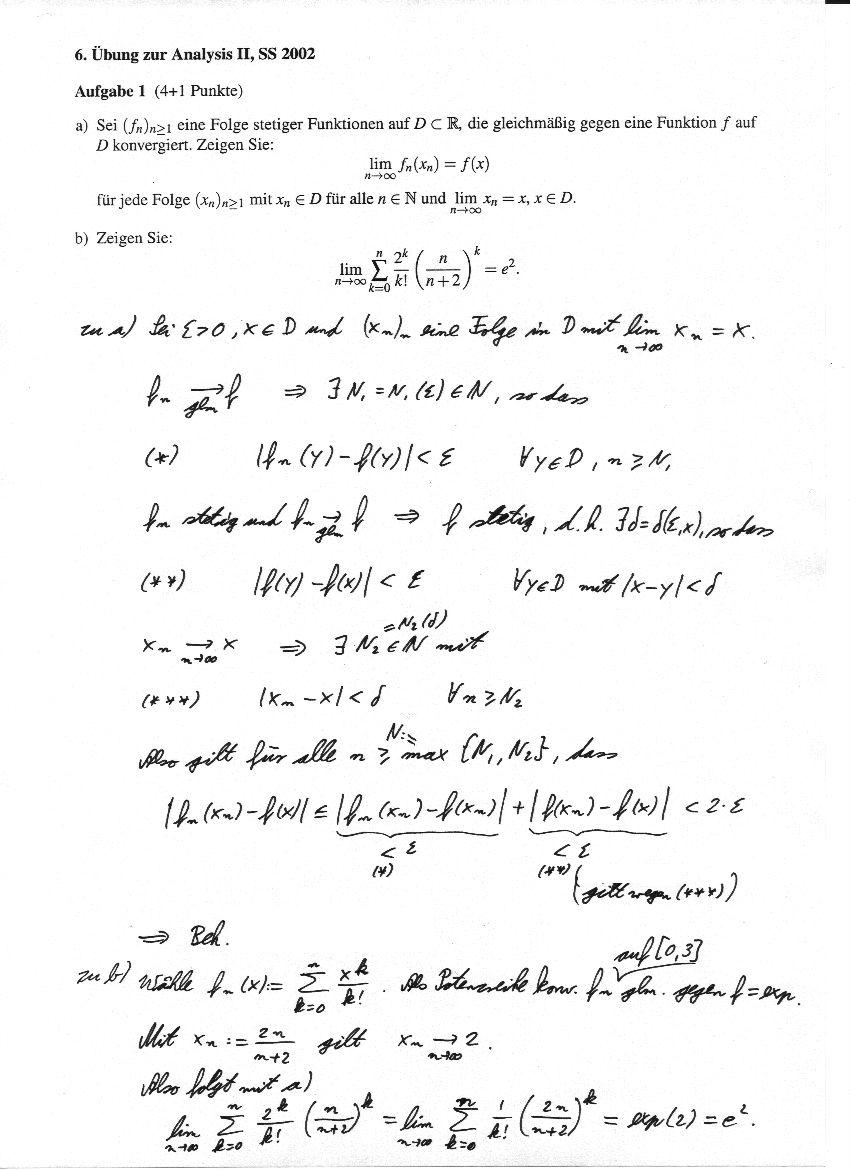 6. Übung zur Analysis II, SS 2002
Aufgabe 1 (4+1 Punkte)
a) Sei (fₙ)ₙ≥₁ eine Folge stetiger Funktionen auf D ⊂ ℝ, die gleichmäßig gegen eine Funktion f auf
D konvergiert. Zeigen Sie:
lim_{n→∞} fₙ(xₙ) = f(x)
für jede Folge (xₙ)ₙ≥₁ mit xₙ ∈ D für alle n ∈ ℕ und lim_{n→∞} xₙ = x, x ∈ D.
b) Zeigen Sie:
lim_{n→∞} ∑_{k=0}^{n} 2^k/k! (n/(n+2))^k = e².
zu a) Sei ε>0, x ∈ D und (xₙ)ₙ eine Folge in D mit lim_{n→∞} xₙ = x.
fₙ →_{glm} f ⇒ ∃ N₁ = N₁(ε) ∈ ℕ, so dass
(*) |fₙ(y) − f(y)| < ε ∀ y∈D, n ≥ N₁
fₙ stetig und fₙ →_{glm} f ⇒ f stetig, d.h. ∃ δ = δ(ε,x), so dass
(**) |f(y) − f(x)| < ε ∀ y∈D mit |x−y| < δ
xₙ →_{n→∞} x ⇒ ∃ N₂ =N₂(δ) ∈ ℕ mit
(***) |xₙ − x| < δ ∀ n ≥ N₂
Also gilt für alle n ≥ N:= max {N₁, N₂}, dass
|fₙ(xₙ) − f(x)| ≤ |fₙ(xₙ) − f(xₙ)| + |f(xₙ) − f(x)| < 2·ε
< ε < ε
(*) (**) (gilt wegen (***))
⇒ Beh.
zu b) Wähle fₙ(x) := ∑_{k=0}^{n} x^k/k! . Als Potenzreihe konv. fₙ auf [0,3] glm. gegen f = exp.
Mit xₙ := 2n/(n+2) gilt xₙ →_{n→∞} 2.
Also folgt mit a)
lim_{n→∞} ∑_{k=0}^{n} 2^k/k! (n/(n+2))^k = lim_{n→∞} ∑_{k=0}^{n} 1/k! (2n/(n+2))^k = exp(2) = e².